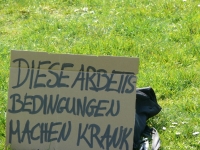 DIESE ARBEITS
BEDINGUNGEN
MACHEN KRANK